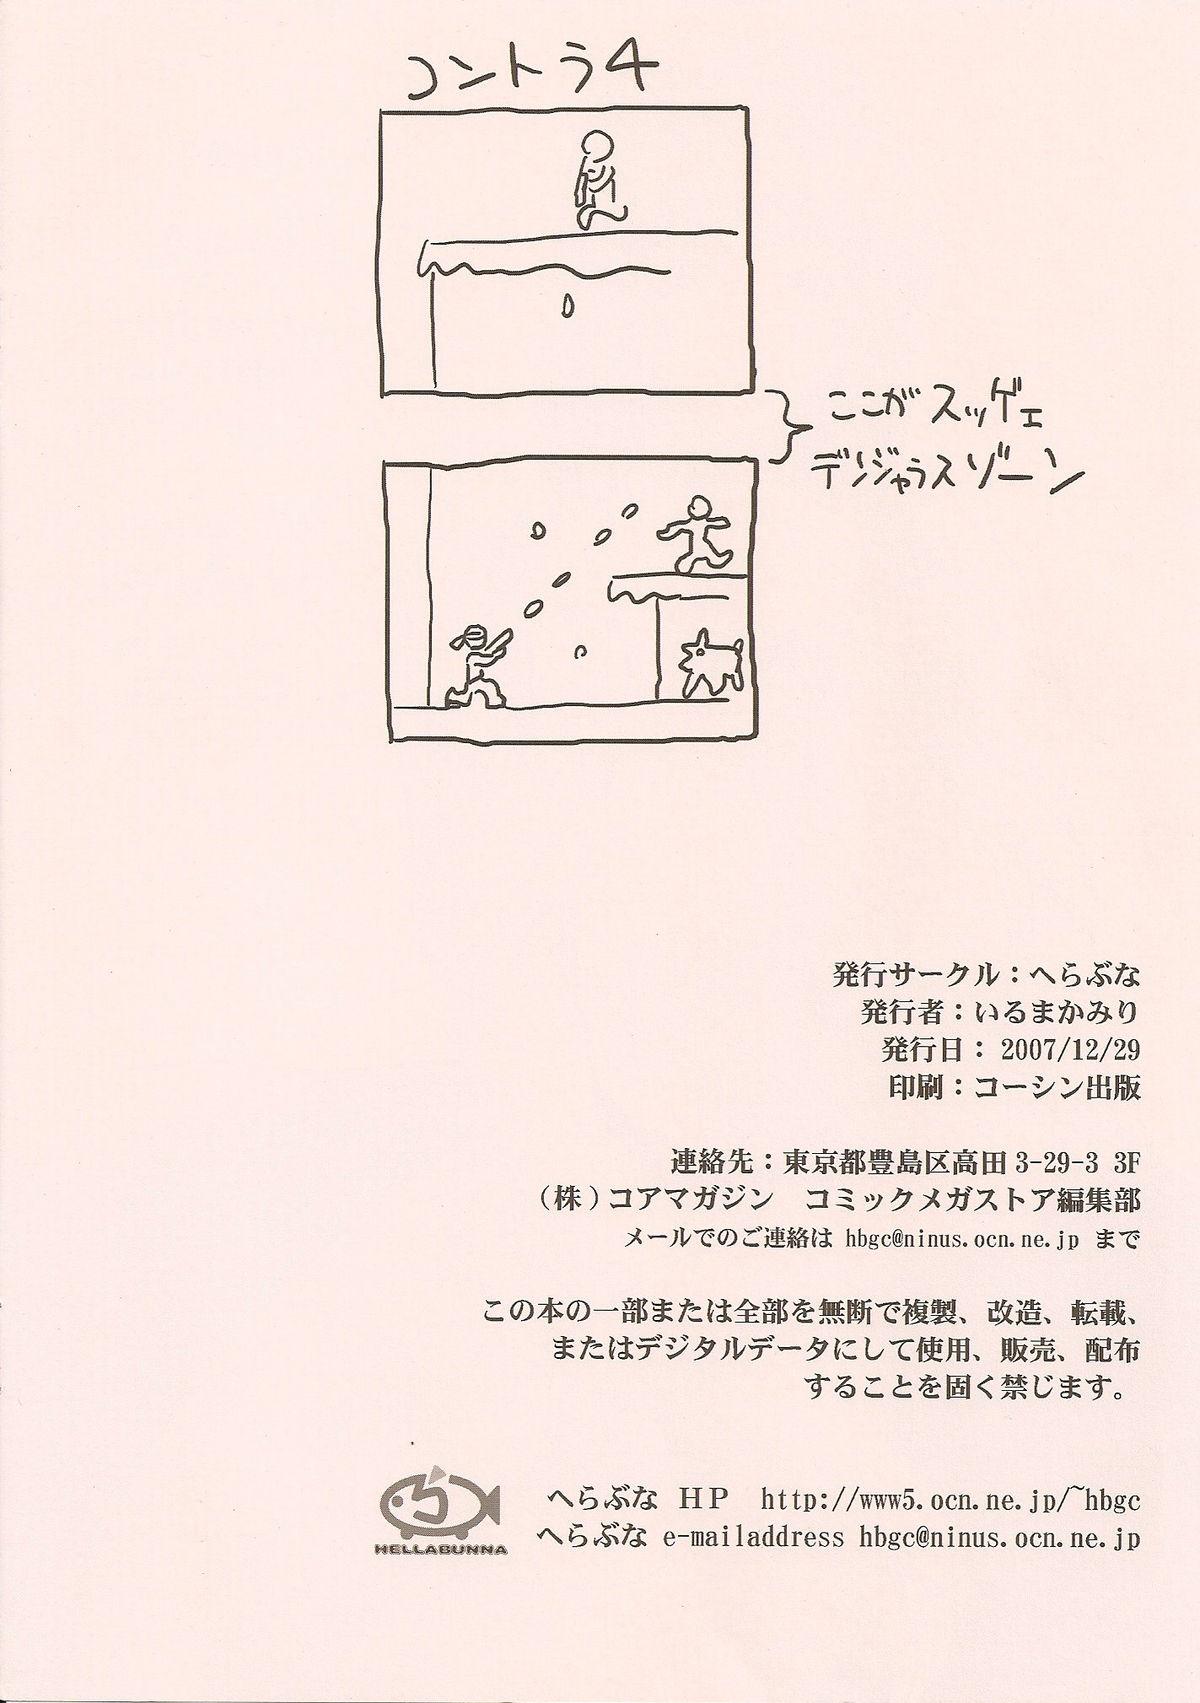 コントラ4
ここがスッゲェ
デンジャラスゾーン
発行サークル：へらぶな
発行者：いるまかみり
発行日： 2007/12/29
印刷：コーシン出版
連絡先：東京都豊島区高田 3-29-3 3F
（株）コアマガジン　コミックメガストア編集部
メールでのご連絡は hbgc@ninus.ocn.ne.jp まで
この本の一部または全部を無断で複製、改造、転載、
またはデジタルデータにして使用、販売、配布
することを固く禁じます。
へらぶな ＨＰ　http://www5.ocn.ne.jp/~hbgc
へらぶな e-mailaddress hbgc@ninus.ocn.ne.jp
HELLABUNNA